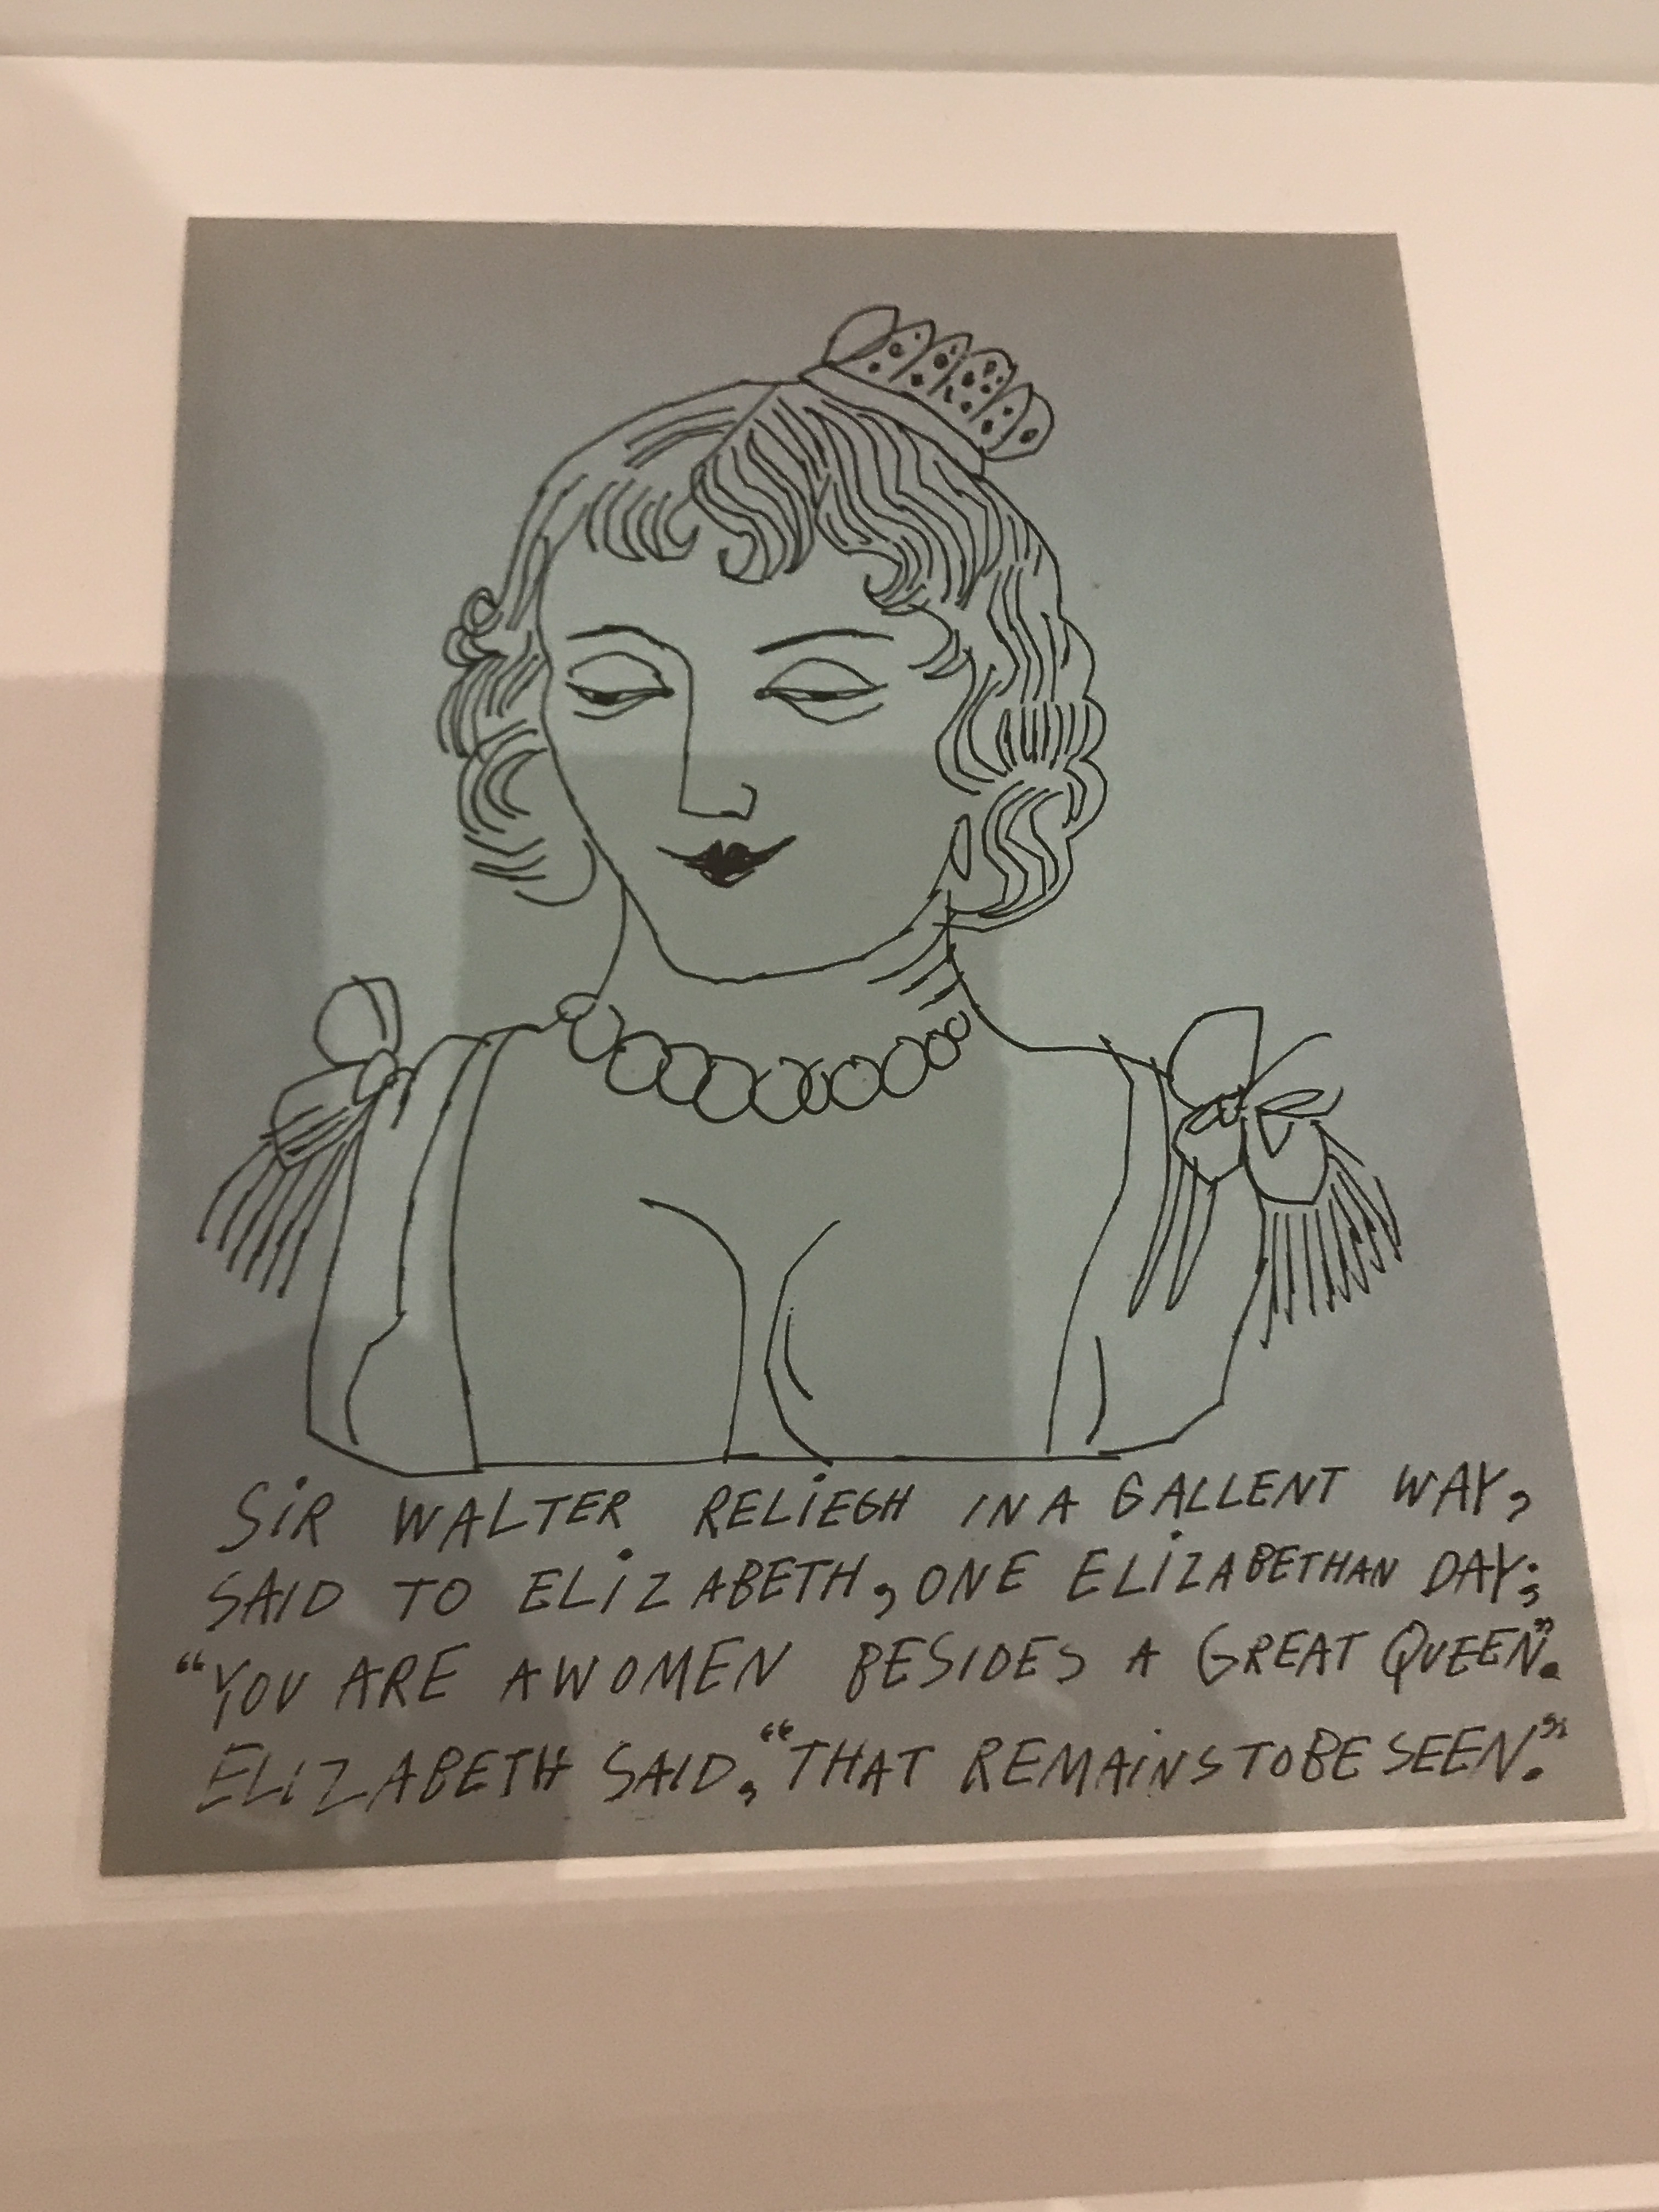 SIR WALTER RELIEGH IN A GALLENT WAY,
SAID TO ELIZABETH, ONE ELIZABETHAN DAY;
“YOU ARE A WOMEN BESIDES A GREAT QUEEN.”
ELIZABETH SAID, “THAT REMAINS TO BE SEEN.”